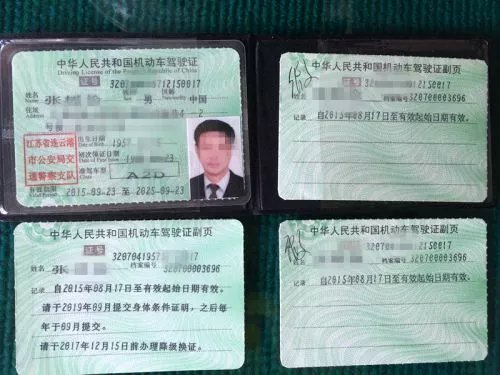 中华人民共和国机动车驾驶证
Driving License of the People's Republic of China
证号 320 5712150017
姓名 张 男 中国
住址
出生日期 195
初次领证日期 23
准驾车型 A2D
有效期限 2015-09-23 至 2025-09-23
江苏省连云港
市公安局交
通警察支队
中华人民共和国机动车驾驶证副页
证号 32 2150017
姓名 档案编号 320700003696
记录 自2015年08月17日至有效起始日期有效。
中华人民共和国机动车驾驶证副页
证号 3207041957
姓名 张 档案编号 320700003696
记录 自2015年08月17日至有效起始日期有效。
请于2019年09月提交身体条件证明，之后每
年于09月提交。
请于2017年12月15日前办理降级换证。
中华人民共和国机动车驾驶证副页
证号 3207 2150017
姓名 档案编号 320700003696
记录 自2015年08月17日至有效起始日期有效。